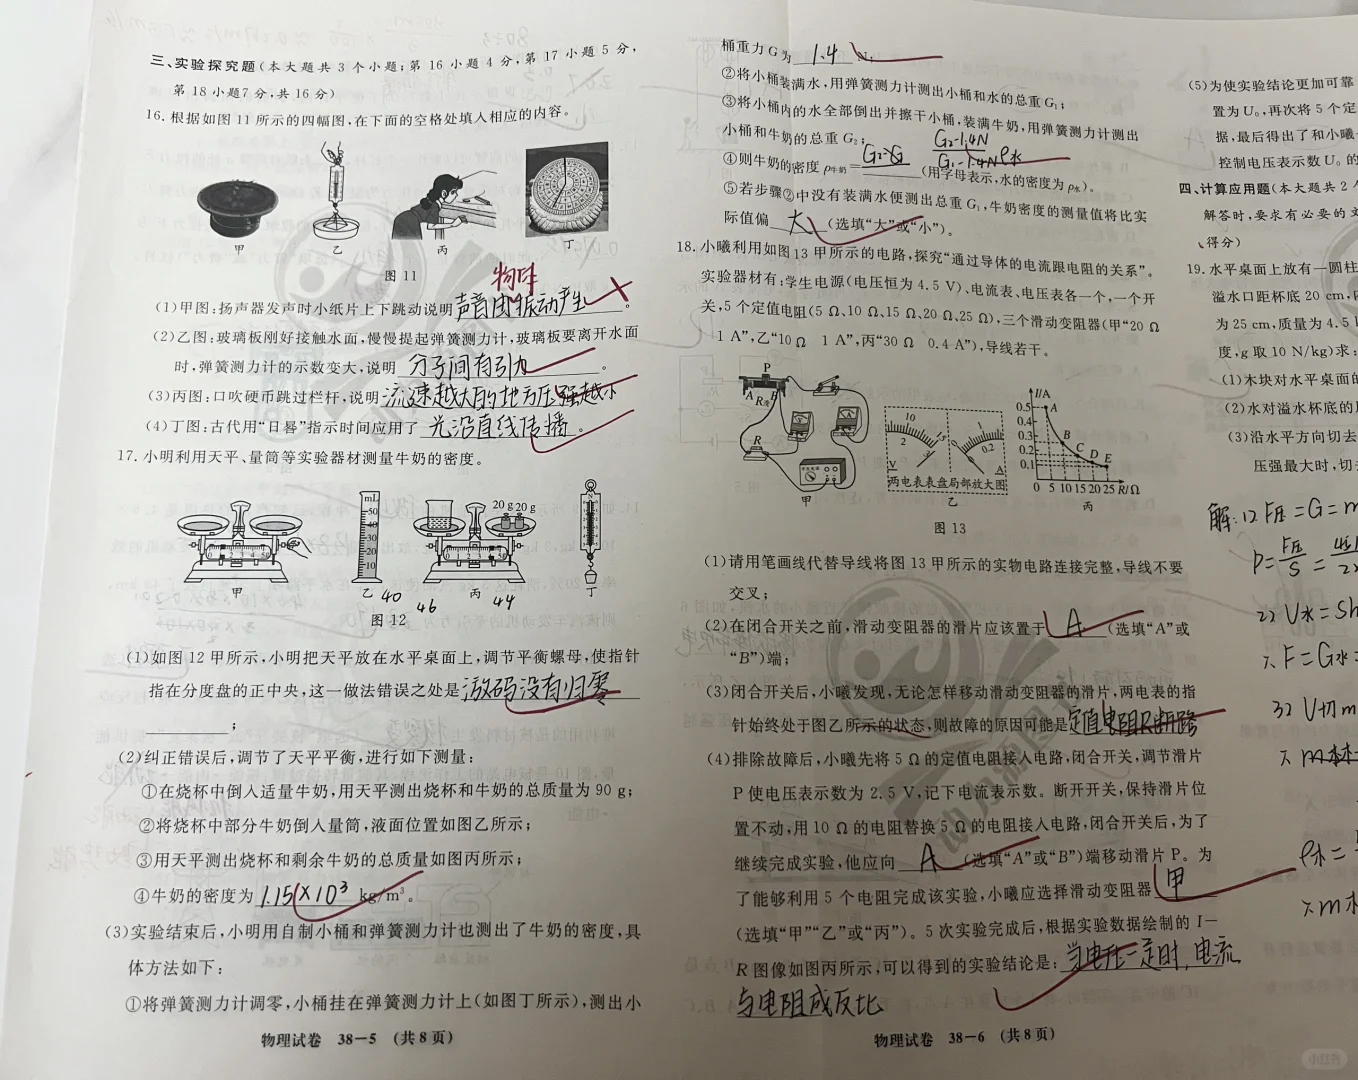 三、实验探究题(本大题共 3 个小题;第 16 小题 4 分,第 17 小题 5 分,
第 18 小题7 分,共 16 分)
16.根据如图 11 所示的四幅图,在下面的空格处填入相应的内容。
甲 乙 丙 丁
图 11
物体
(1)甲图:扬声器发声时小纸片上下跳动说明声音由振动产生。
(2)乙图:玻璃板刚好接触水面,慢慢提起弹簧测力计,玻璃板要离开水面
时,弹簧测力计的示数变大,说明 分子间有引力 。
(3)丙图:口吹硬币跳过栏杆,说明流速越大的地方压强越小
(4)丁图:古代用“日晷”指示时间应用了 光沿直线传播 。
17.小明利用天平、量筒等实验器材测量牛奶的密度。
mL
50
40
30
20
10
20 g 20 g
甲 乙 丙 丁
40 46 44
图 12
(1)如图 12 甲所示,小明把天平放在水平桌面上,调节平衡螺母,使指针
指在分度盘的正中央,这一做法错误之处是游码没有归零
;
(2)纠正错误后,调节了天平平衡,进行如下测量:
①在烧杯中倒入适量牛奶,用天平测出烧杯和牛奶的总质量为 90 g;
②将烧杯中部分牛奶倒入量筒,液面位置如图乙所示;
③用天平测出烧杯和剩余牛奶的总质量如图丙所示;
④牛奶的密度为 1.15×10³ kg/m³。
(3)实验结束后,小明用自制小桶和弹簧测力计也测出了牛奶的密度,具
体方法如下:
①将弹簧测力计调零,小桶挂在弹簧测力计上(如图丁所示),测出小
物理试卷 38-5 (共 8 页)
桶重力 G 为 1.4 N;
②将小桶装满水,用弹簧测力计测出小桶和水的总重 G₁;
③将小桶内的水全部倒出并擦干小桶,装满牛奶,用弹簧测力计测出
小桶和牛奶的总重 G₂;
④则牛奶的密度 ρ牛奶= G₂-1.4N / G₁-1.4N ρ水 (用字母表示,水的密度为 ρ水)。
⑤若步骤②中没有装满水便测出总重 G₁,牛奶密度的测量值将比实
际值偏 大 (选填“大”或“小”)。
18.小曦利用如图 13 甲所示的电路,探究“通过导体的电流跟电阻的关系”。
实验器材有:学生电源(电压恒为 4.5 V)、电流表、电压表各一个,一个开
关,5 个定值电阻(5 Ω、10 Ω、15 Ω、20 Ω、25 Ω),三个滑动变阻器(甲“20 Ω
1 A”,乙“10 Ω 1 A”,丙“30 Ω 0.4 A”),导线若干。
P
A R滑 B
R
甲
10
2
15
3
V
0.2
A
两电表表盘局部放大图
乙
I/A
0.5
0.4
0.3
0.2
0.1
A
B
C D E
0 5 10 15 20 25 R/Ω
丙
图 13
(1)请用笔画线代替导线将图 13 甲所示的实物电路连接完整,导线不要
交叉;
(2)在闭合开关之前,滑动变阻器的滑片应该置于 A (选填“A”或
“B”)端;
(3)闭合开关后,小曦发现,无论怎样移动滑动变阻器的滑片,两电表的指
针始终处于图乙所示的状态,则故障的原因可能是定值电阻R断路
(4)排除故障后,小曦先将 5 Ω 的定值电阻接入电路,闭合开关,调节滑片
P 使电压表示数为 2.5 V,记下电流表示数。断开开关,保持滑片位
置不动,用 10 Ω 的电阻替换 5 Ω 的电阻接入电路,闭合开关后,为了
继续完成实验,他应向 A (选填“A”或“B”)端移动滑片 P。为
了能够利用 5 个电阻完成该实验,小曦应选择滑动变阻器 甲
(选填“甲”“乙”或“丙”)。5 次实验完成后,根据实验数据绘制的 I-
R 图像如图丙所示,可以得到的实验结论是: 当电压一定时,电流
与电阻成反比
物理试卷 38-6 (共 8 页)
(5)为使实验结论更加可靠
置为 U₀,再次将 5 个定
据,最后得出了和小曦
控制电压表示数 U₀ 的
四、计算应用题(本大题共 2
解答时,要求有必要的文
得分)
19.水平桌面上放有一圆柱
溢水口距杯底 20 cm,
为 25 cm,质量为 4.5
度,g 取 10 N/kg)求:
(1)木块对水平桌面的
(2)水对溢水杯底的
(3)沿水平方向切去
压强最大时,切
解:1) F压=G=m
P=F压/S=
2) V水=Sh
∴F=G水=
3) V切m
∴m
∴m木
小红书